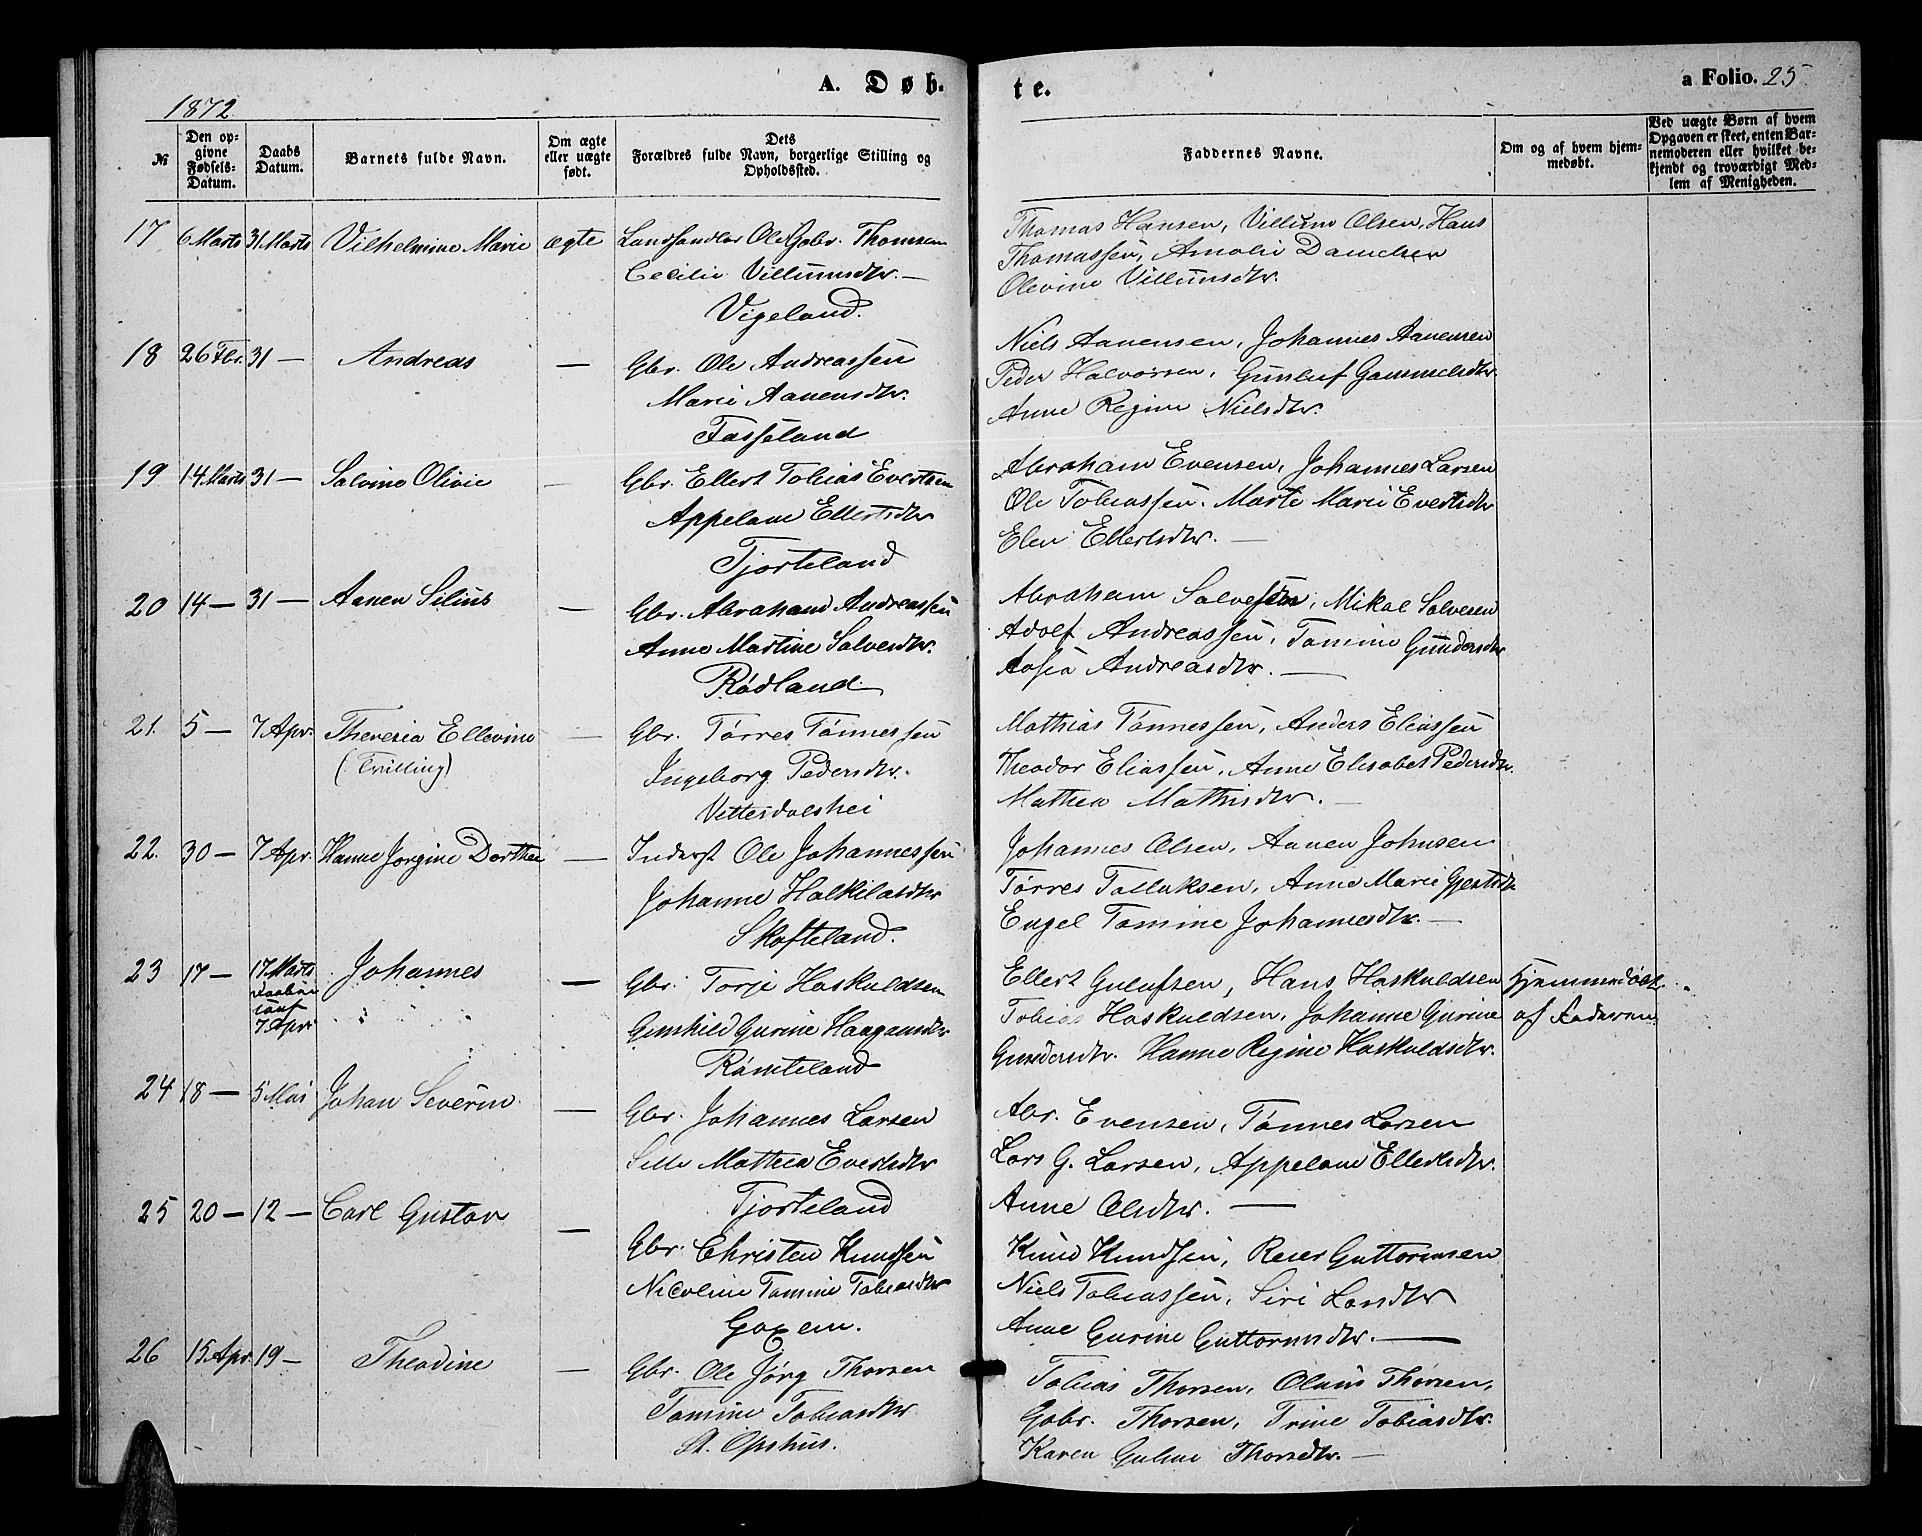 A. Døb-
te.
a Folio. 25
1872
№
Den opgivne Fødsels-Datum.
Daabs Datum.
Barnets fulde Navn.
Om ægte eller uægte født.
Dets Forældres fulde Navn, borgerlige Stilling og Opholdssted.
Faddernes Navne.
Om og af hvem hjemmedøbt.
Ved uægte Børn af hvem Opgaven er skeet, enten Barnemoderen eller hvilket bekjendt og troværdigt Medlem af Menigheden.
17 6 Marts 31 Marts Vilhelmine Marie ægte Landhandler Ole Gabr. Thomsen
Cecilie Villumsdtr. —
Vigeland.
Thomas Hansen, Villum Olsen, Hans
Thomassen, Amalie
Olevine Villumsdtr.
18 26 Fbr. 31 — Andreas — Gbr. Ole Andreassen
Marie Aanensdtr.
Fasseland
Niels Aanensen, Johannes Aanensen
Peder Halvorsen, Gunluf Gammelsdtr.
Anne Regine Nielsdtr.
19 14 Marts 31 — Salvine Olivie — Gbr. Ellert Tobias Evertsen
Appelone Ellertsdtr
Tjorteland
Abraham Evensen, Johannes Larsen
Ole Tobiassen. Marte Marie Evertsdtr
Elen Ellertsdtr. —
20 14 — 31 — Aanen Silius — Gbr. Abraham Andreassen
Anne Martine Salvesdtr.
Rødland.
Abraham Salvesen, Mikal Salvesen
Adolf Andreassen, Tomine Gundersdtr
Aasia Andreasdtr. —
21. 5 — 7 Apr. Theresia Ellevine — Gbr. Tørres Tønnessen
(Tvilling)
Ingeborg Pedersdtr.
Vittersdalshei
Mathias Tønnessen, Anders Eliassen
Theodor Eliassen, Anne Elisabet Pedersdtr.
Mathea Mathisdtr. —
22. 30 — 7 Apr. Hanne Jorgine Dorthea — Inderst Ole Johannessen
Johanne Halkilsdtr
Skofteland.
Johannes Olsen, Aanen Johnsen
Tørres Tolluksen, Anne Marie Gjertsdtr
Engel Tomine Johannesdtr. —
23 17 — 17 Marts Johannes — Gbr. Torje Haskuldsen
7 Apr
Gunhild Gurine Haagensdtr
Rømteland
Ellert Gulufsen, Hans Haskuldsen Hjemmedøbt
Tobias Haskuldsen, Johanne Gurine af Faderen
Gundersdtr. Hanne Regine Haskuldsdtr.
24 18 — 5 Mai Johan Severin — Gbr. Johannes Larsen
Sille Mathea Evertsdtr
Tjorteland
Abr. Evensen, Tønnes Larsen
Lars G. Larsen, Appelone Ellertsdtr.
Anne Olsdtr. —
25 20 — 12 — Carl Gustav — Gbr. Christen Knudsen
Nicoline Tomine Tobiasdtr
Goxem.
Knud Knudsen, Reier Guttormsen
Niels Tobiassen, Siri Larsdtr
Anne Gurine Guttormsdtr. —
26 15 Apr. 19 — Theodine — Gbr. Ole Jørg Thorsen
Tomine Tobiasdtr
St. Opshus.
Tobias Thorsen, Olaus Thorsen,
Gabr. Thorsen, Trine Tobiasdtr.
Karen Guline Thorsdtr. —